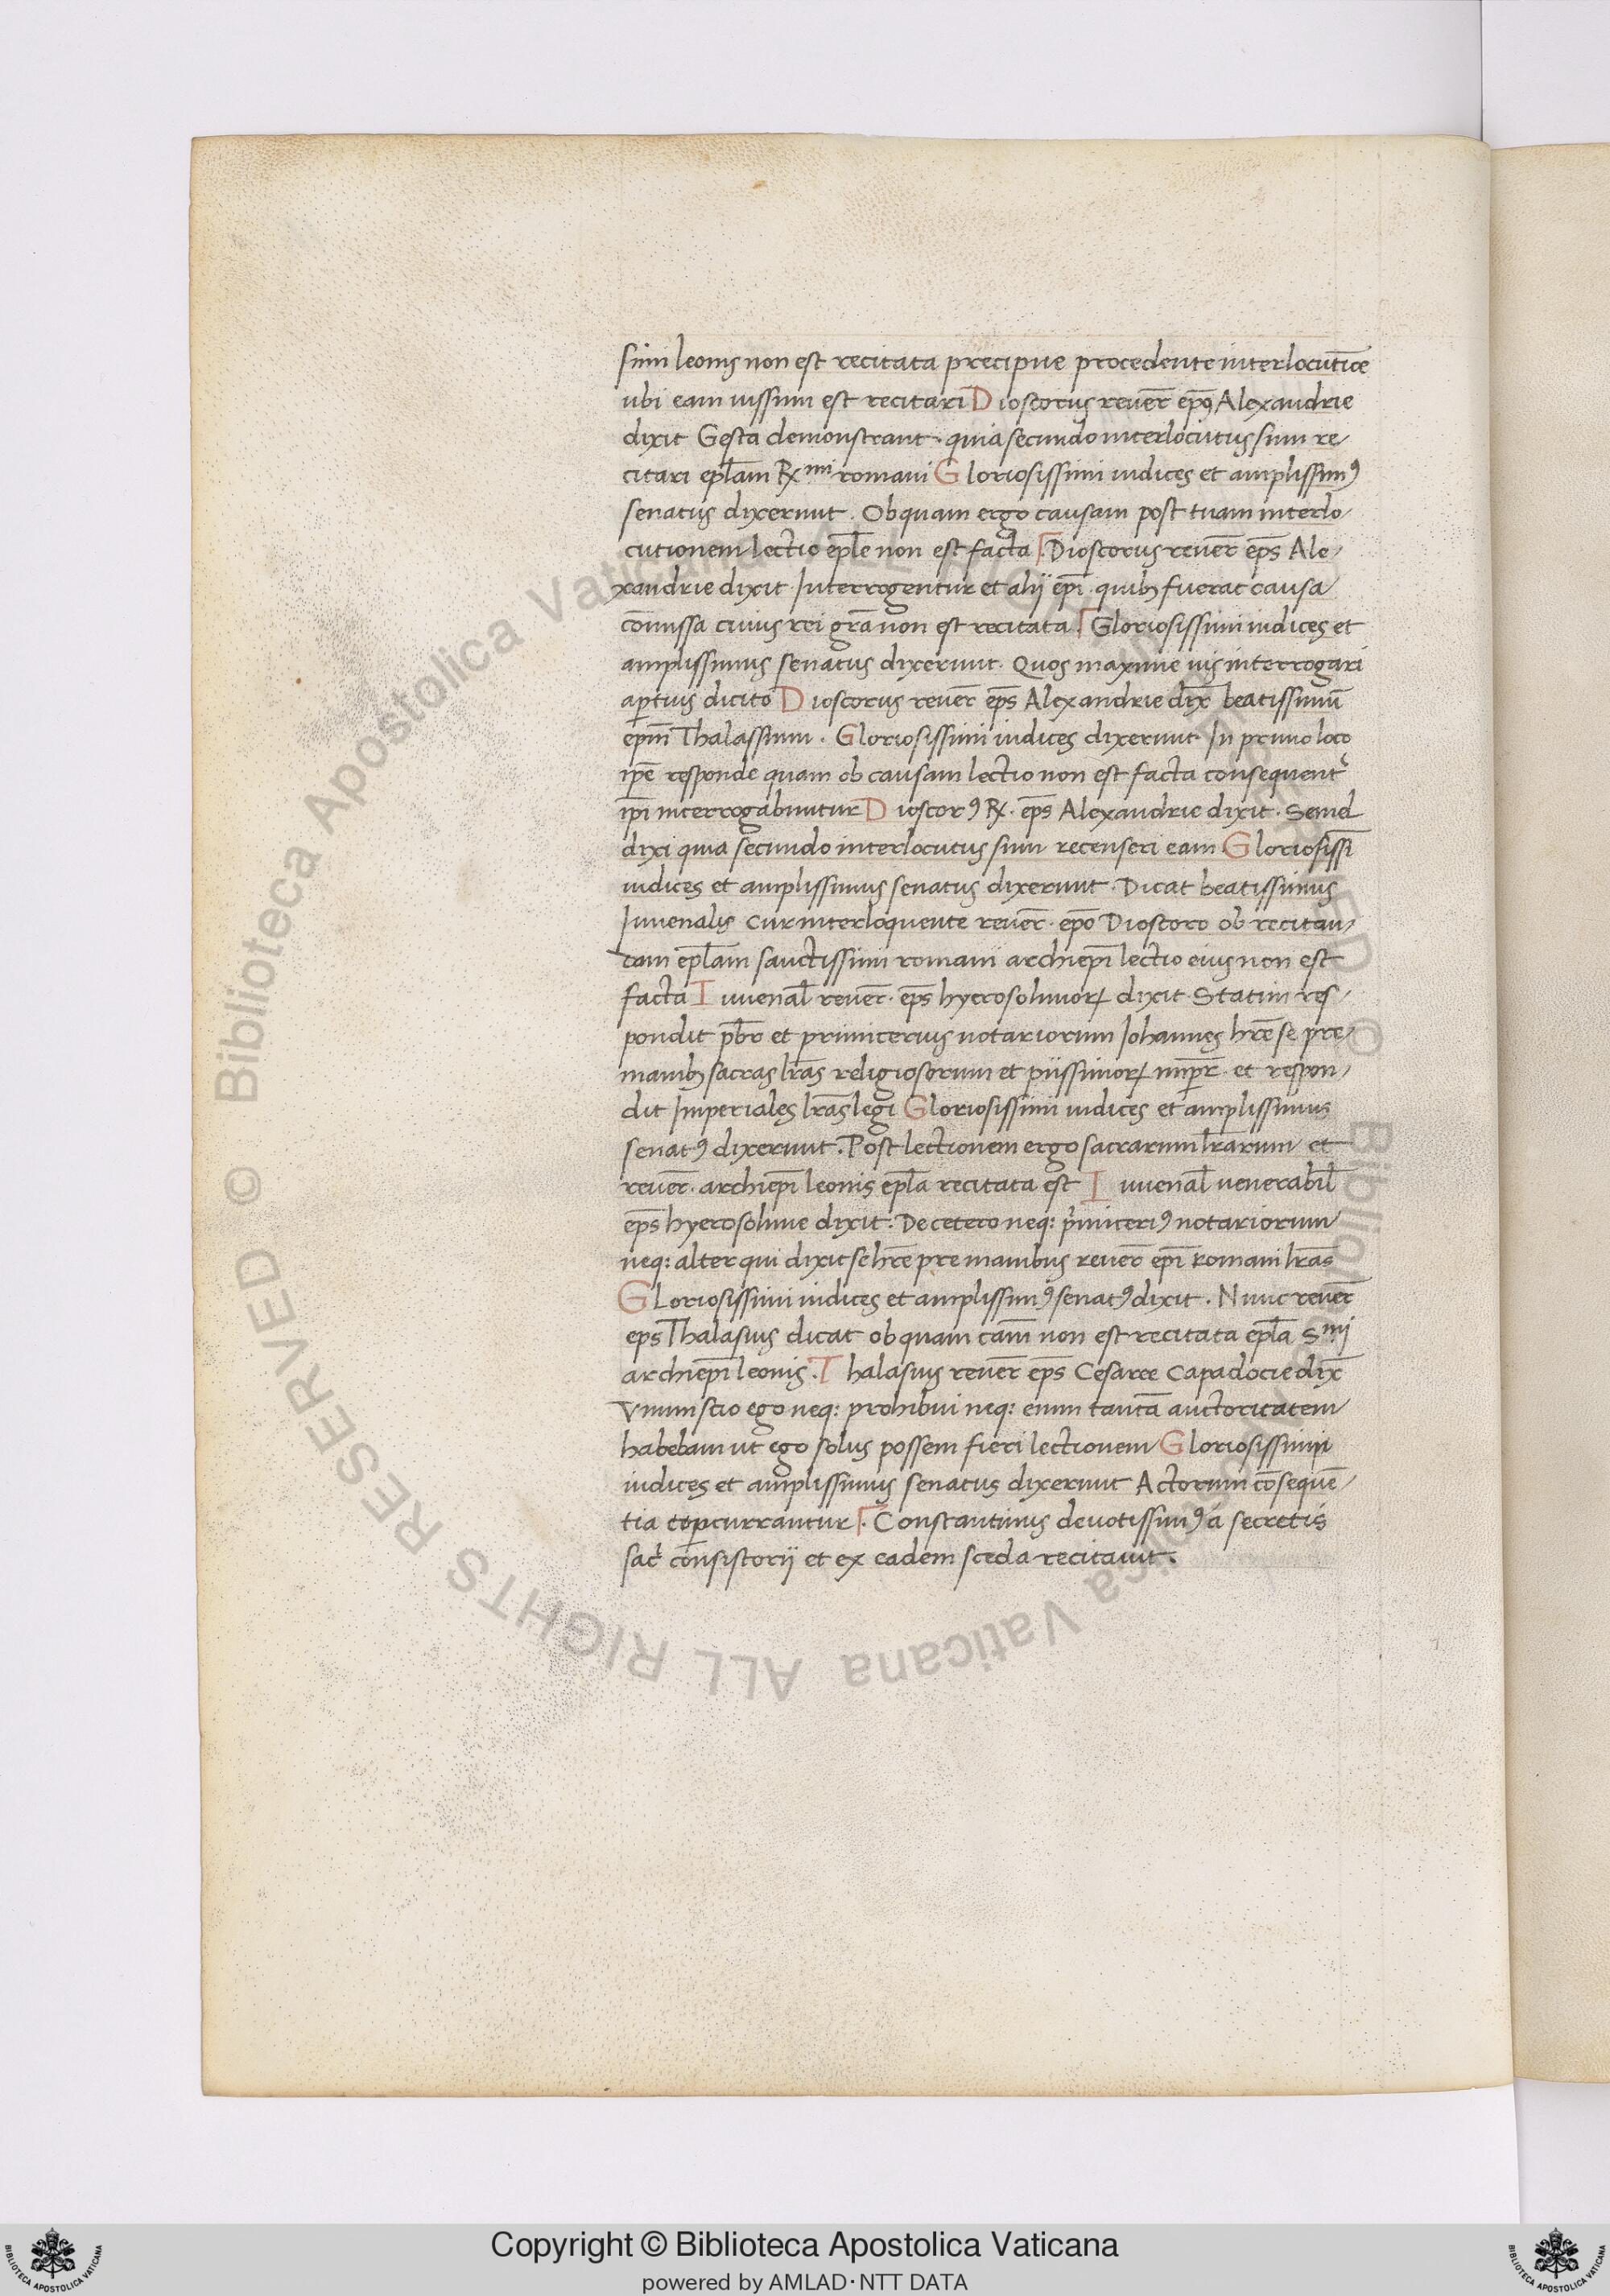 simi leonis non est recitata precipue procedente interlocut̄ōe
ubi eam iussum est recitari Dioscorus reuer̄ ep̄s Alexandrie
dixit Gesta demonstrant · quia secundo interlocutus sum re/
citari ep̄lam Rmi romani Gloriosissimi iudices et amplissimꝰ
senatus dixerunt . Ob quam ergo causam post tuam interlo/
cutionem lectio ep̄le non est facta . Dioscorus reuer̄ ep̄s Ale/
xandrie dixit Interrogentur et alij ep̄i · quibꝫ fuerat causa
com̄issa cuius rei gr̄a non est recitata . Gloriosissimi iudices et
amplissimus senatus dixerunt . Quos maxime uis interrogari
apertius dicito Dioscorus reuer̄ ep̄s Alexandrie dix̄ beatissimū
ep̄m Thalassium . Gloriosissimi iudices dixerunt In primo loco
ip̄e responde quam ob causam lectio non est facta consequent̉
ip̄i interrogabuntur Dioscorꝰ R · ep̄s Alexandrie dixit · Semel
dixi quia secundo interlocutus sum recenseri eam Gloriosissi̅
iudices et amplissimus senatus dixerunt . Dicat beatissimus
Iuuenalis cur interloquente reuer̄ · ep̄o Dioscoro ob recitan/
dam ep̄lam sanctissimi romani archiep̄i lectio eius non est
facta Iuuenal̄ reuer̄ · ep̄s hyerosolimoꝝ dixit · Statim res/
pondit pb̄r et primicerius notariorum Iohannes hr̄e se pre/
manibꝫ sacras lr̄as religiosorum et piissimoꝝ imper̄ · et respon/
dit Imperiales lr̄as legi Gloriosissimi iudices et amplissimus
senatꝰ dixerunt . Post lectionem ergo sacrarum lr̄arum et
reuer̄ · archiep̄i leonis ep̄la recitata est Iuuenal̄ uenerabil̄
ep̄s hyerosolime dixit : De cetero neq: primiceriꝰ notariorum
neq: alter qui dixit se hr̄e pre manibus reuer̄ ep̄i Romani lr̄as
Gloriosissimi iudices et amplissimꝰ senatꝰ dixit . Nunc reuer̄
eps Thalasius dicat ob quam cām non est recitata ep̄la Smi
archiep̄i leonis . Thalasius reuer̄ ep̄s Cesaree Capadocie dix̄
Unum scio ego neq: prohibui neq: enim tantā auctoritatem
habebam ut ego solus possem fieri lectionem Gloriosissimi
iudices et amplissimus senatus dixerunt Actorum cōsequē/
tia percurrantur . Constantinus deuotissimꝰ a secretis
sac̉ consistorij et ex eadem sceda recitauit .
Biblioteca Apostolica Vaticana ALL RIGHTS RESERVED ©
Copyright © Biblioteca Apostolica Vaticana
powered by AMLAD·NTT DATA
BIBLIOTECA APOSTOLICA VATICANA
BIBLIOTECA APOSTOLICA VATICANA